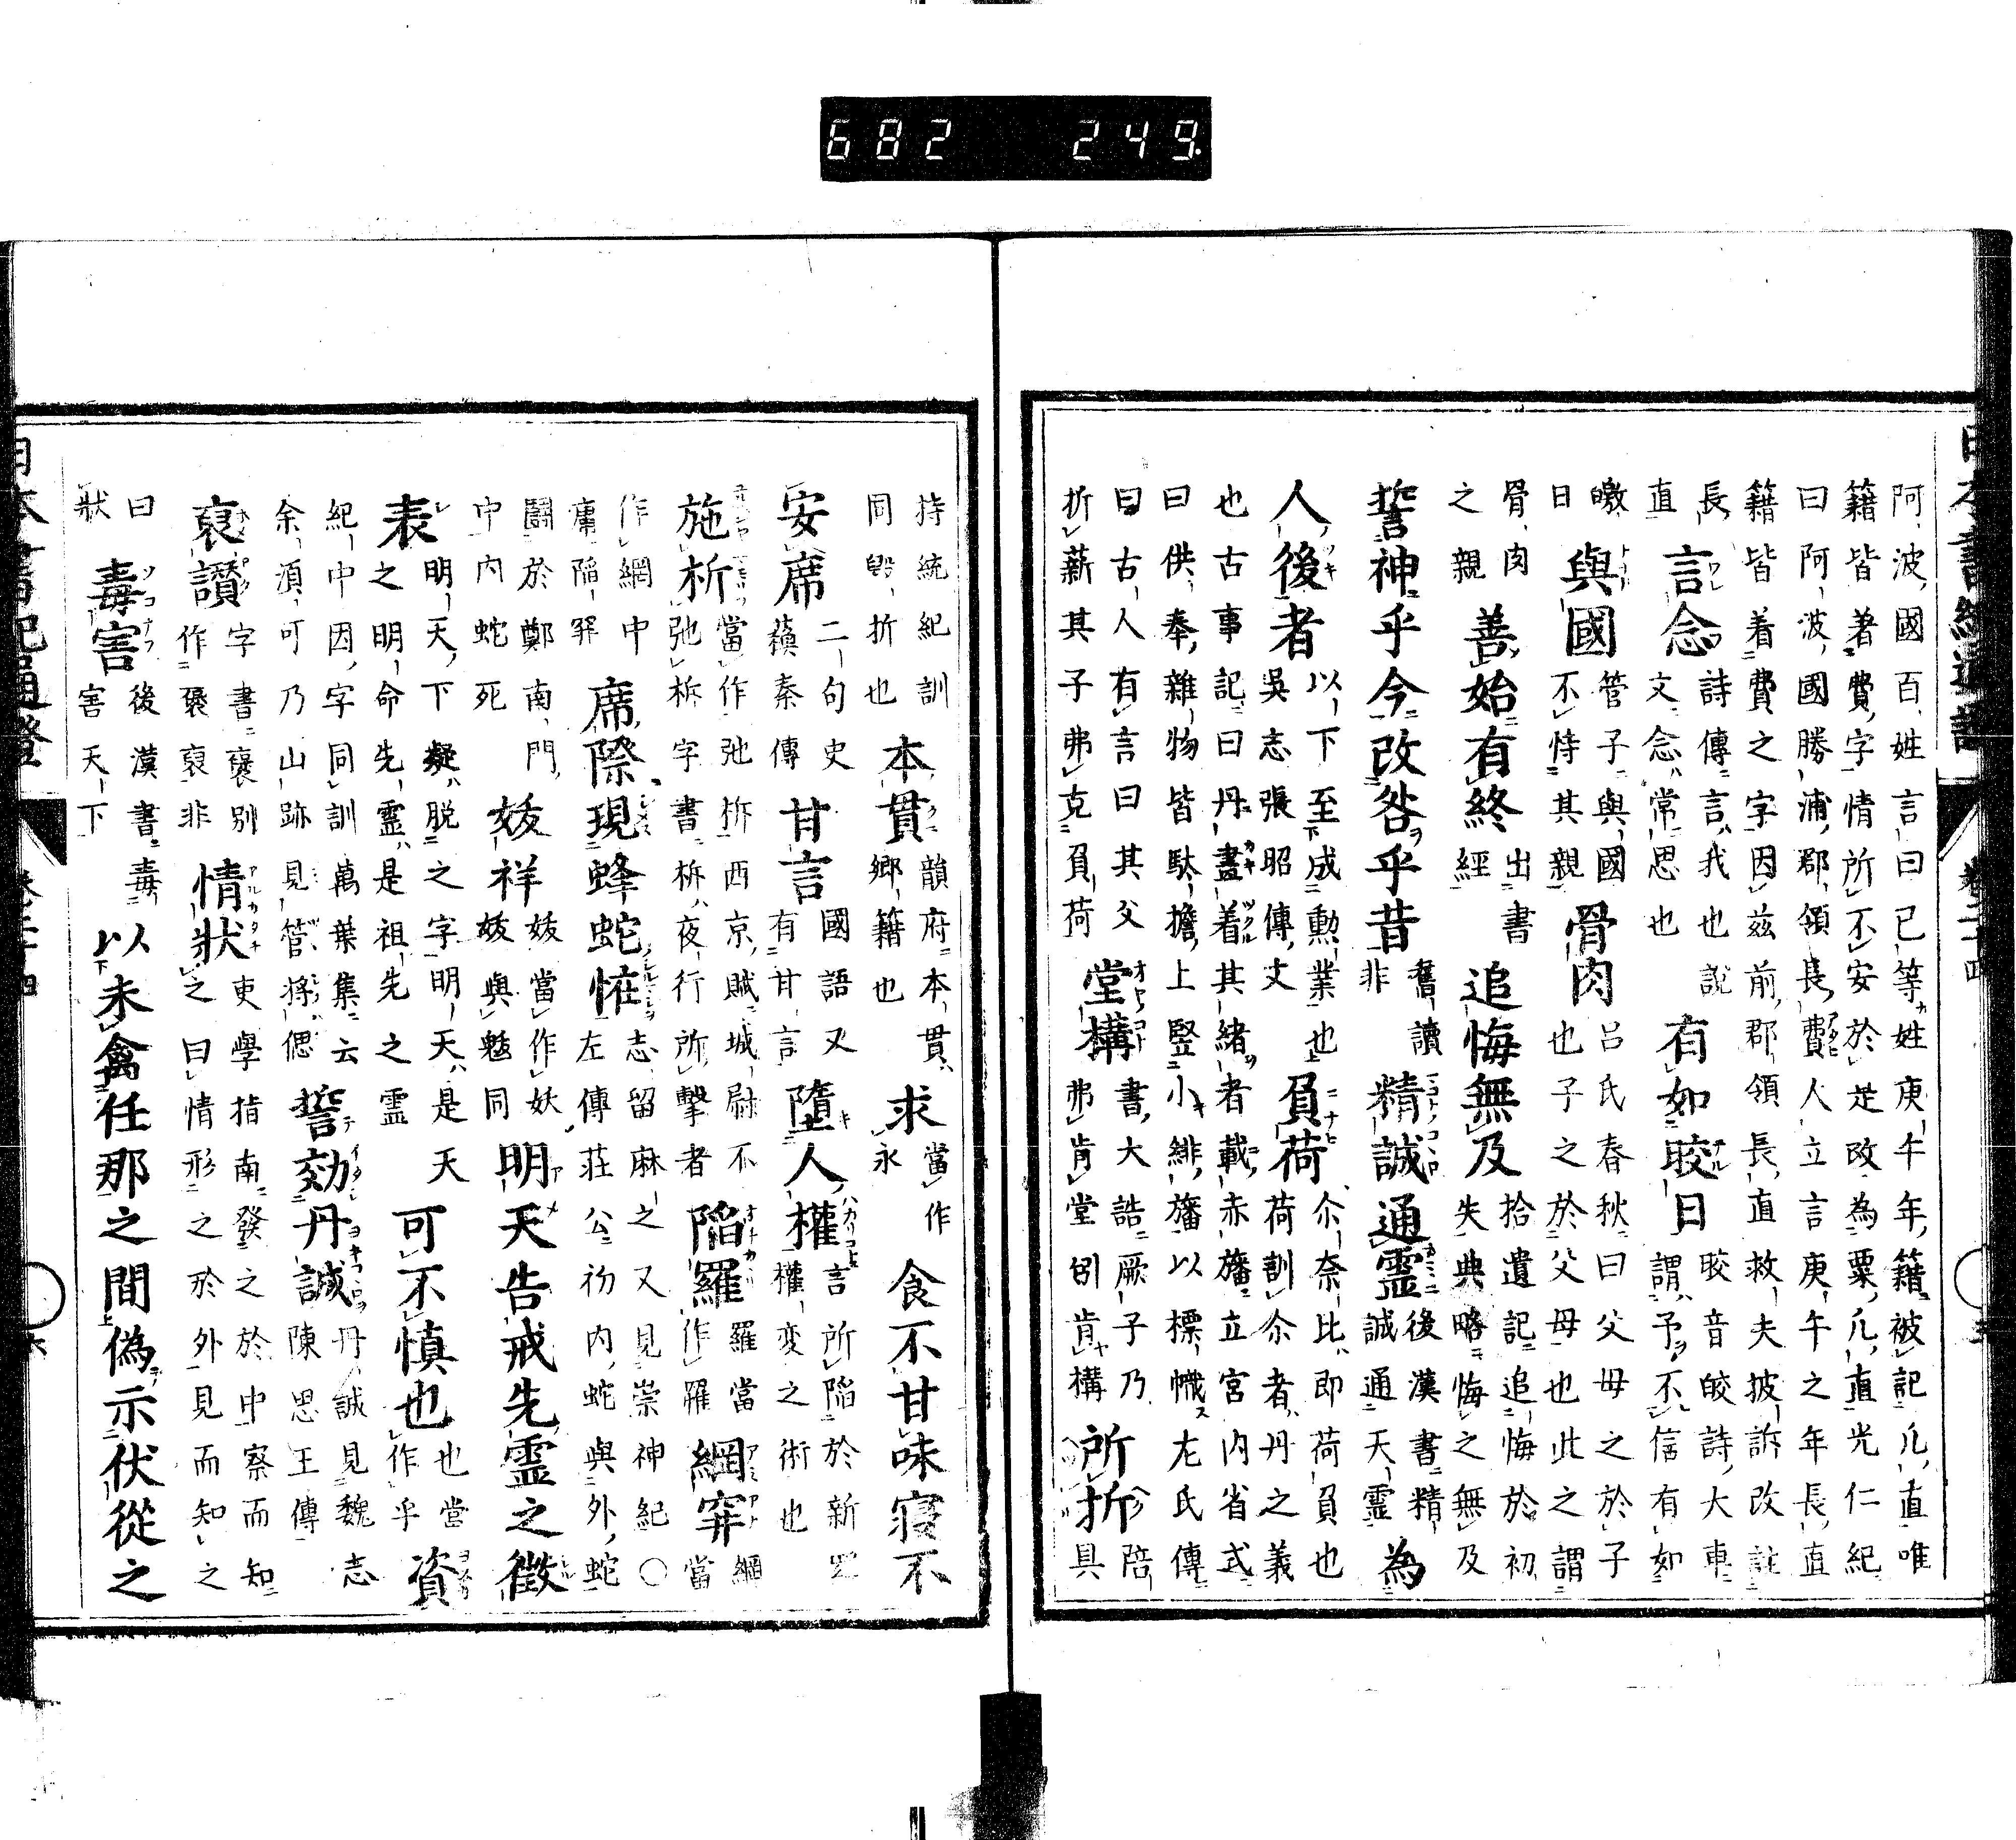 阿波國百姓言曰已等姓庚午年籍被記凡直唯
籍皆著費字情所不安於是改為粟凡直光仁紀
曰阿波國勝浦郡領長費人立言庚午之年長直
籍皆着費之字因茲前郡領長直救夫披訴改註
長
直
言念
詩傳言我也說
文念常思也
有如皎日
皎音皎詩大車
謂予不信有如
皦
日
與國
管子與國
不恃其親
骨肉
呂氏春秋曰父母之於子
也子之於父母也此之謂
骨肉
之親
善始有終
出書
經
追悔無及
拾遺記追悔於初
失典略悔之無及
誓神乎今改咎乎昔
舊讀
非
精誠通靈
後漢書精
誠通天靈
為
人後者
以下至成勲業也
吳志張昭傳文
負荷
尒奈比即荷負也
荷訓尒者丹之義
也古事記曰丹畫着其緒者載赤旛立宮内省式
曰供奉雜物皆駄擔上竪小緋旛以標幟左氏傳
曰古人有言曰其父
折薪其子弗克負荷
堂構
書大誥厥子乃
弗肯堂矧肯構
所折
陪
具
持統紀訓
同毀折也
本貫
韻府本貫
鄉籍也
求
當作
永
食不甘味寝不
安席
二句史
蘓秦傳
甘言
國語又
有甘言
墮人權
言所陷於新羅
權変之術也
施柝
當作弛柝西京賦城尉不
弛柝字書柝夜行所擊者
陷羅
羅當
作罹
網穽
網
當
作網中
庸陷罪
席際現蜂蛇怪
志留麻之又見崇神紀〇
左傳莊公初内蛇與外蛇
鬪於鄭南門
中内蛇死
妭祥
妭當作妖
妭與魃同
明天告戒先靈之徵
表
明天下疑脱之字明天是天
之明命先靈是祖先之靈
可不慎也
也當
作乎
資
紀中因字同訓萬葉集云
余湏可乃山跡見管将偲
誓効丹誠
丹誠見魏志
陳思王傳
裒讃
字書襃別
作褒裒非
情狀
吏學指南發之於中察而知
之曰情形之於外見而知之
曰
狀
毒害
後漢書毒
害天下
以未禽任那之間偽示伏從之